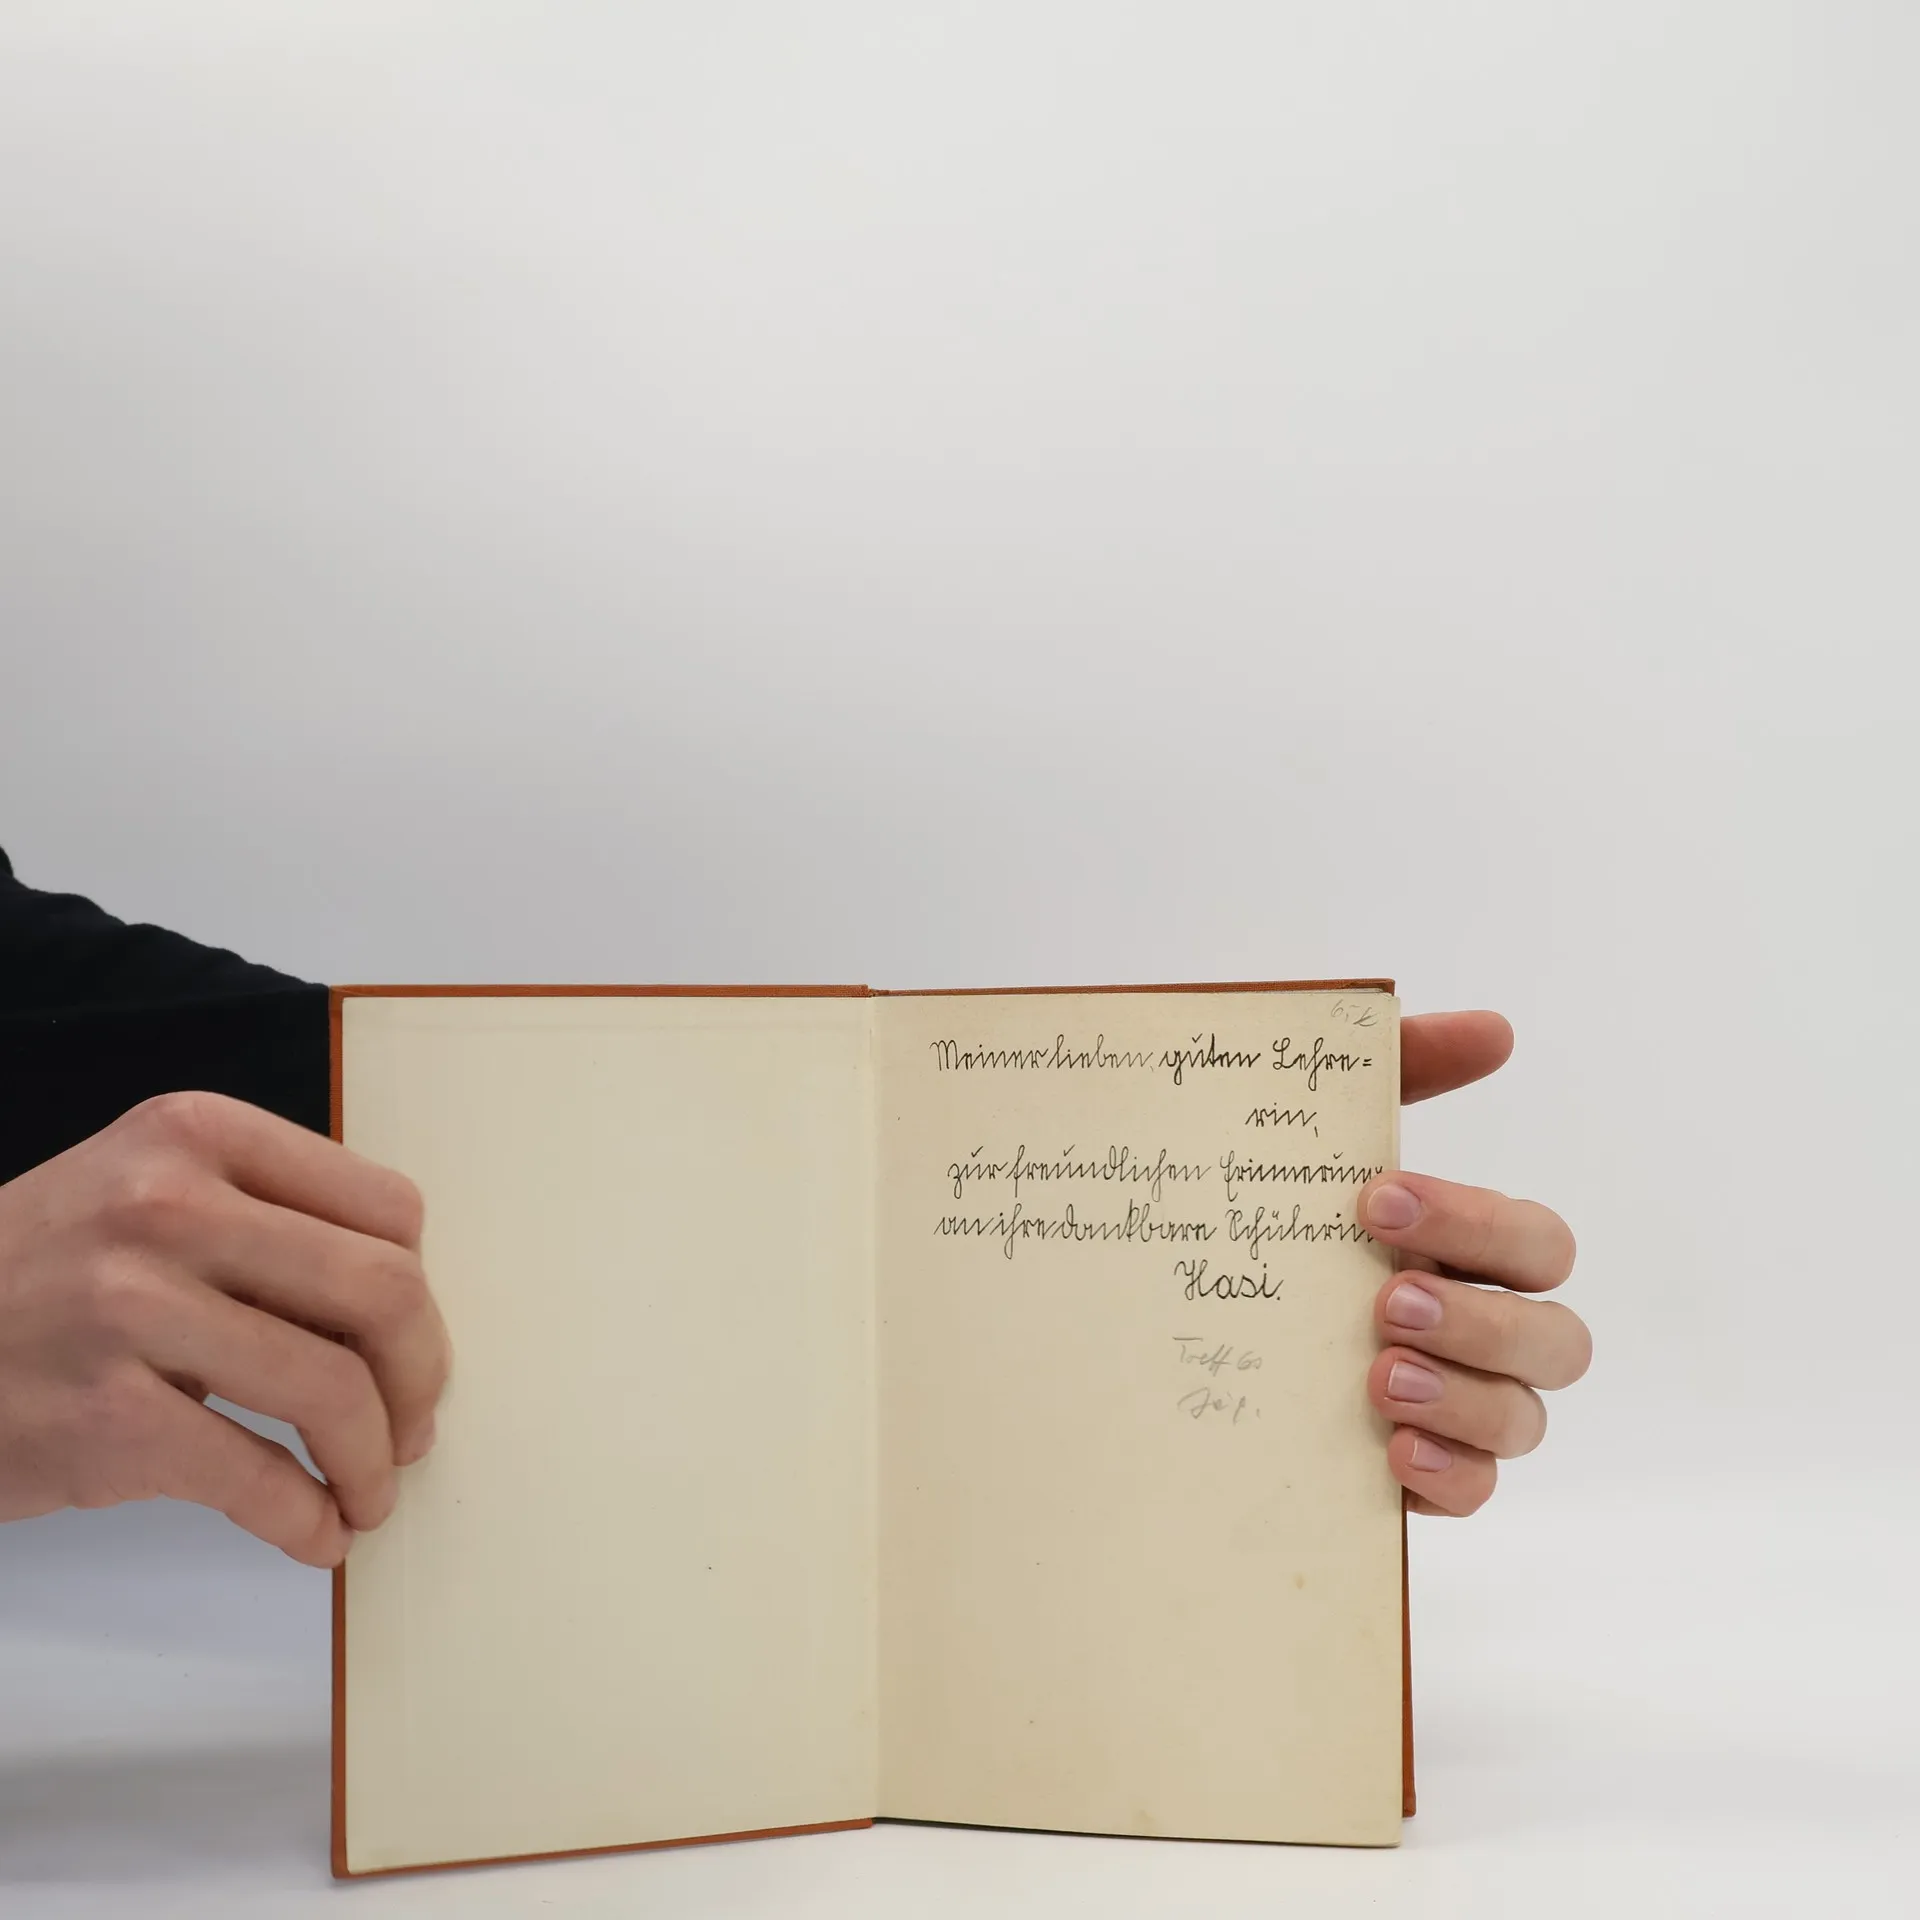 Meiner lieben, guten Lehre=
rin,
zur freundlichen Erinnerung
an ihre dankbare Schülerin
Hasi.
Treff